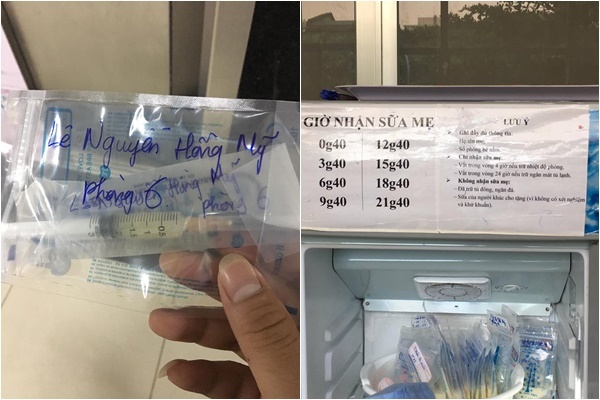 Lê Nguyễn Hồng Mỹ
Phòng 6
phòng 6
1.5
1
0.5
GIỜ NHẬN SỮA MẸ
0g40 12g40
3g40 15g40
6g40 18g40
9g40 21g40
LƯU Ý
- Ghi đầy đủ thông tin:
- Họ tên mẹ.
- Số phòng bé nằm.
- Chỉ nhận sữa mẹ:
- Vắt trong vòng 4 giờ nếu trữ nhiệt độ phòng.
- Vắt trong vòng 24 giờ nếu trữ ngăn mát tủ lạnh.
- Không nhận sữa mẹ:
- Đã trữ tủ đông, ngăn đá.
- Sữa của người khác cho tặng (vì không có xét nghiệm
và khử khuẩn).